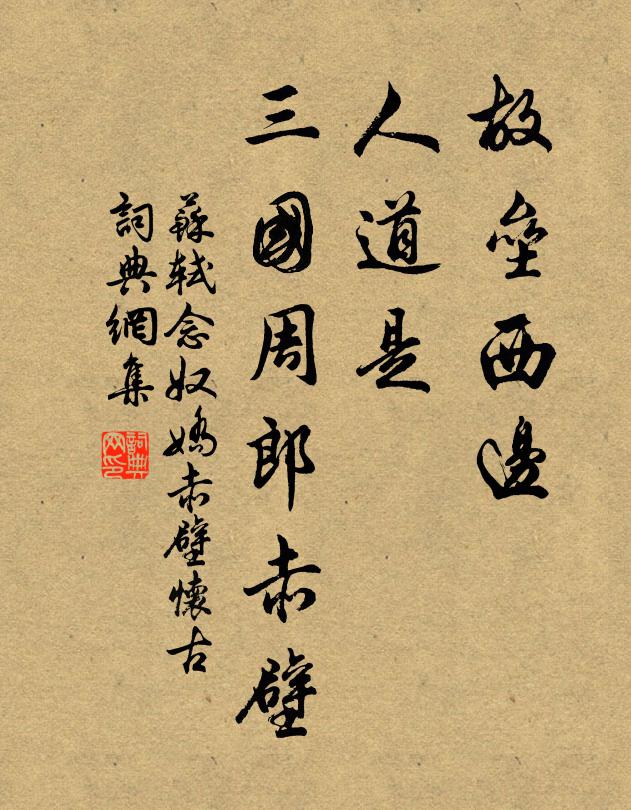 故壘西邊
人道是
三國周郎赤壁
蘇軾念奴嬌赤壁懷古
詞典網集
詞典網印